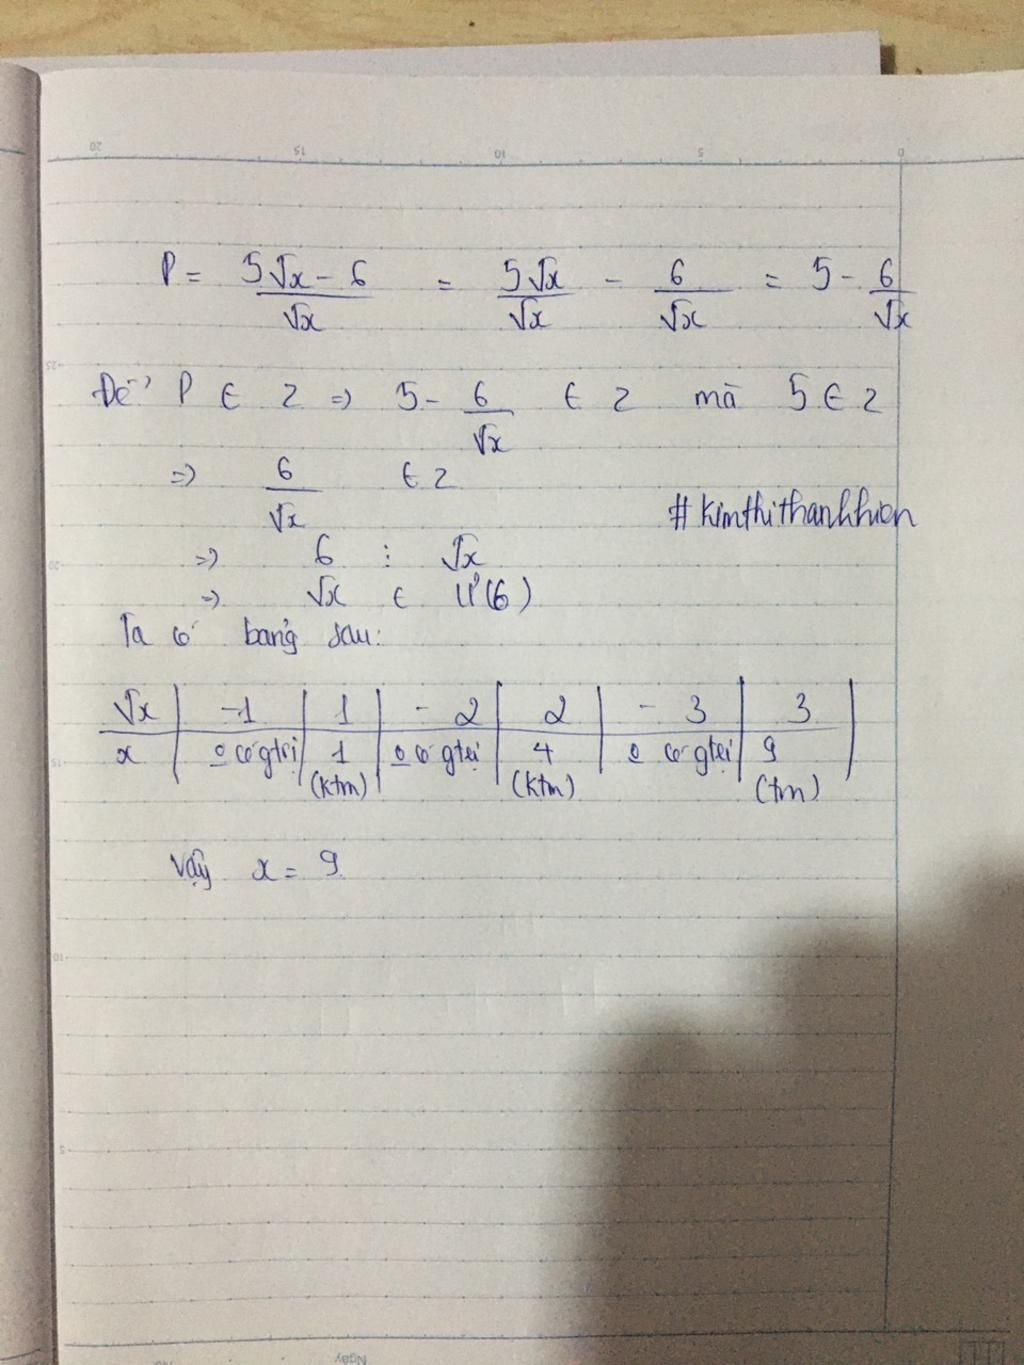 P = 5√x - 6 / √x = 5√x / √x - 6 / √x = 5 - 6 / √x
Để P ∈ Z => 5 - 6 / √x ∈ Z mà 5 ∈ Z
=> 6 / √x ∈ Z
#kimthithanhhien
=> 6 ⋮ √x
=> √x ∈ Ư(6)
Ta có bảng sau:
√x | -1 | 1 | -2 | 2 | -3 | 3
x | o có gtrị | 1 (ktm) | o có gtrị | 4 (ktm) | o có gtrị | 9 (tm)
Vậy x = 9